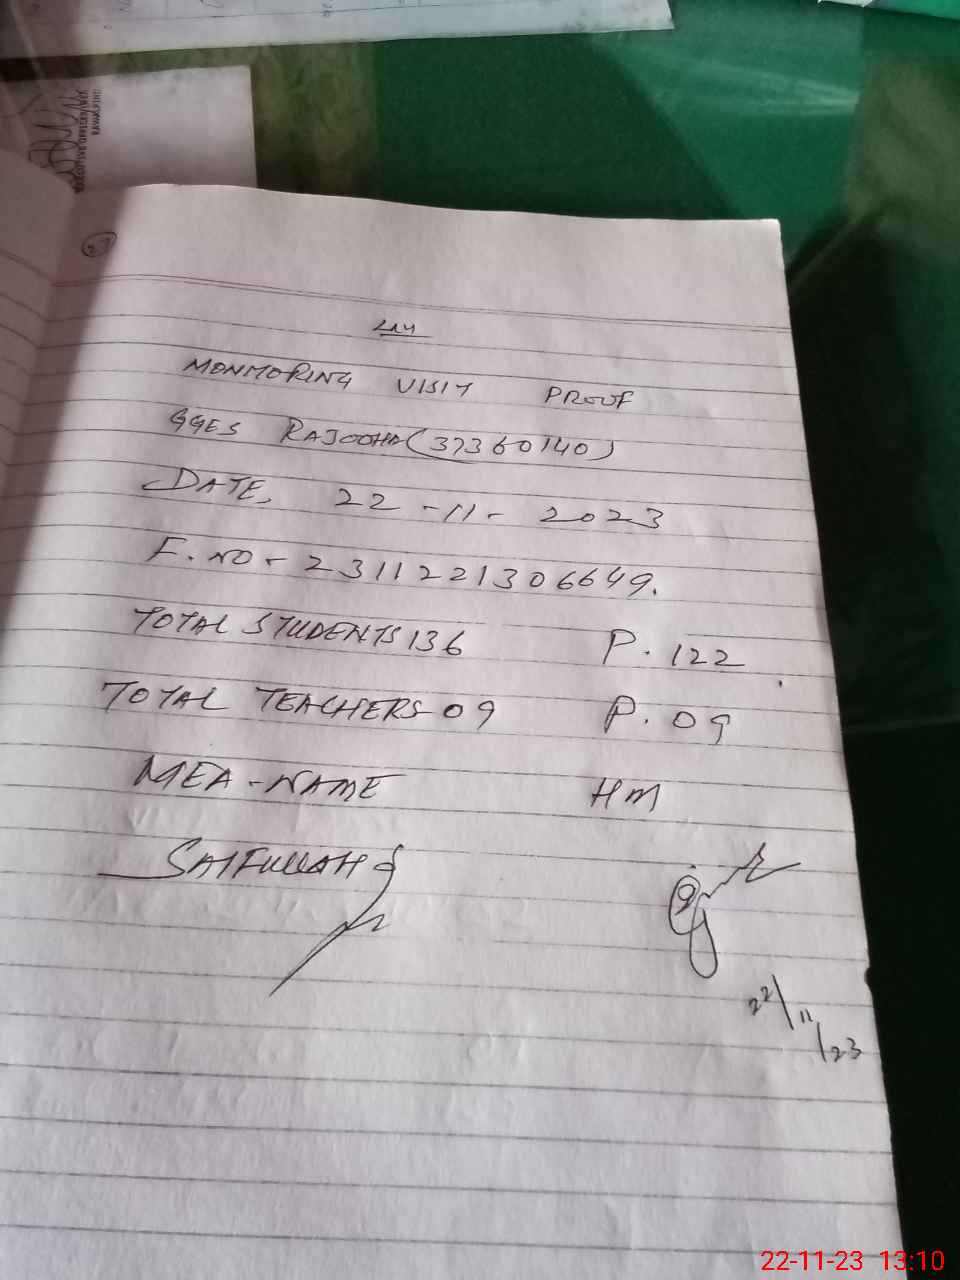 27
MONITORING VISIT PROOF
GGES RAJOOHA (37360140)
DATE, 22-11-2023
F.NO-2311221306649.
TOTAL STUDENTS 136 P. 122
TOTAL TEACHERS-09 P. 09
MEA-NAME HM
SAIFULLAH
22/11/23
RAWALPINDI
22-11-23 13:10